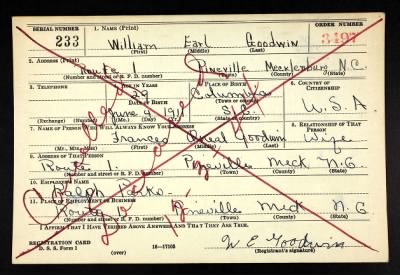 SERIAL NUMBER
1. NAME (Print)
ORDER NUMBER
233
William Earl Goodwin
3497
(First) (Middle) (Last)
2. ADDRESS (Print)
Route 1 Pineville Mecklenburg N.C.
(Number and street or R. F. D. number) (Town) (County) (State)
3. TELEPHONE
6. COUNTRY OF CITIZENSHIP
Columbia
DATE OF BIRTH
June
S.C.
U.S.A.
7. NAME OF PERSON WHO WILL ALWAYS KNOW YOUR ADDRESS
8. RELATIONSHIP OF THAT PERSON
Frances Goodwin Wife
(Mr., Mrs., Miss) (First) (Middle) (Last)
9. ADDRESS OF THAT PERSON
Route 1 Pineville Meck N.C.
(Number and street or R. F. D. number) (Town) (County) (State)
10. EMPLOYER'S NAME
Ralph
11. PLACE OF EMPLOYMENT OR BUSINESS
Route Pineville Meck N.C
(Number and street or R. F. D. number) (Town) (County) (State)
I AFFIRM THAT I HAVE VERIFIED ABOVE ANSWERS AND THAT THEY ARE TRUE.
REGISTRATION CARD
D. S. S. Form 1
(over)
16—17105
W E Goodwin
(Registrant's signature)